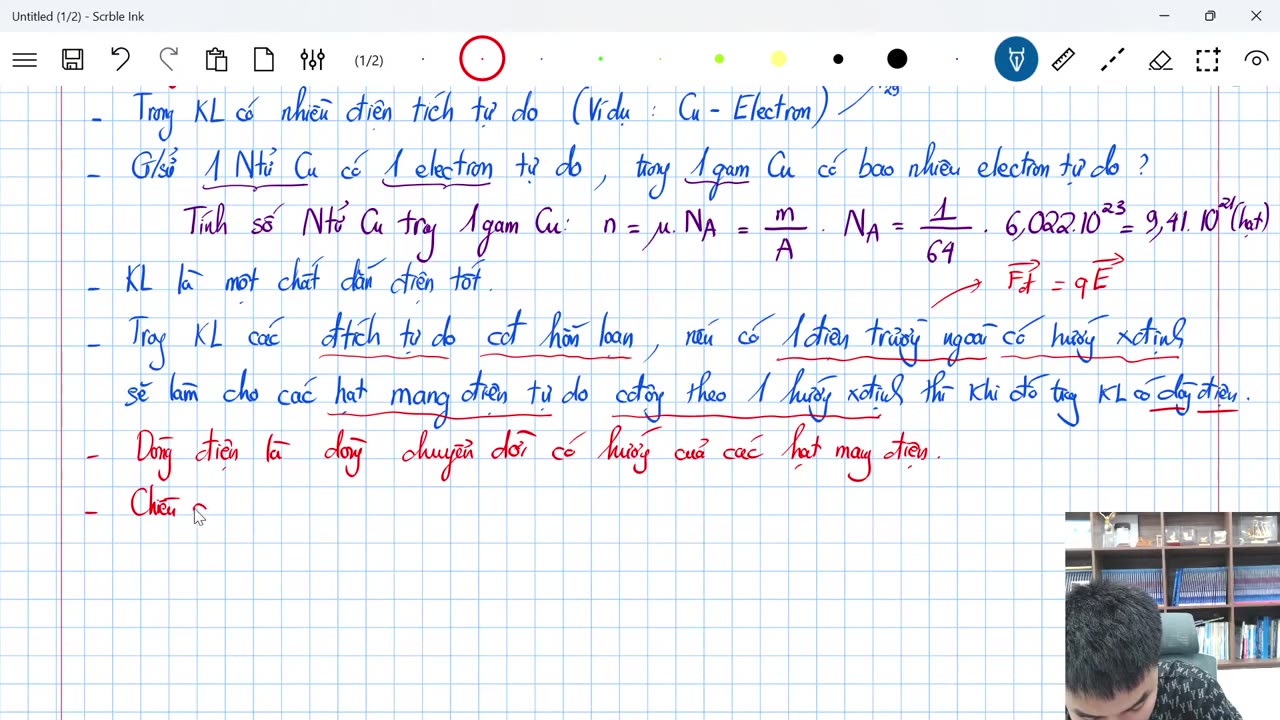 Untitled (1/2) - Scrble Ink
(1/2)
- Trong KL có nhiều điện tích tự do (Ví dụ : Cu - Electron) 29
- G/sử 1 Ntử Cu có 1 electron tự do , trong 1 gam Cu có bao nhiêu electron tự do ?
Tính số Ntử Cu trg 1 gam Cu: n = μ. NA = m/A . NA = 1/64 . 6,022.10^23 = 9,41. 10^21 (hạt)
- KL là một chất dẫn điện tốt.
Fđ = qE
- Trog KL các đtích tự do cđ hỗn loạn , nếu có 1 điện trường ngoài có hướng xđịnh
sẽ làm cho các hạt mang điện tự do cđộng theo 1 hướng xđịnh thì khi đó trog KL có dòng điện .
- Dòng điện là dòng chuyển dời có hướng của các hạt mang điện .
- Chiều